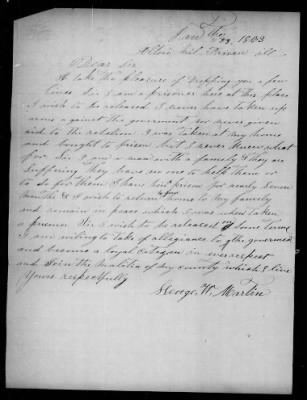 Jan The 23, 1863
Alton Mil. Prison ill
Dear Sir
I take the pleasure of Droping you a few
lines Sir I am a prisoner here at this place
I wish to be released I never have taken up
arms against the government nor never given
aid to the rebelion I was taken at my home
and bought to prison but I never knew what
for Sir I am a man with a family & they are
suffering they have no one to help them or
to do for them I have bin prison for nearly Seven
months & I wish to return home to my family
and remain in peace which I was when taken
a prisoner Sir I wish to be released of some terms
I am willing to take of allegiance to the government
and become a loyal Citizen in ever respect
and Join the malitia of my county which I live
Yours respectfully
George W. Martin